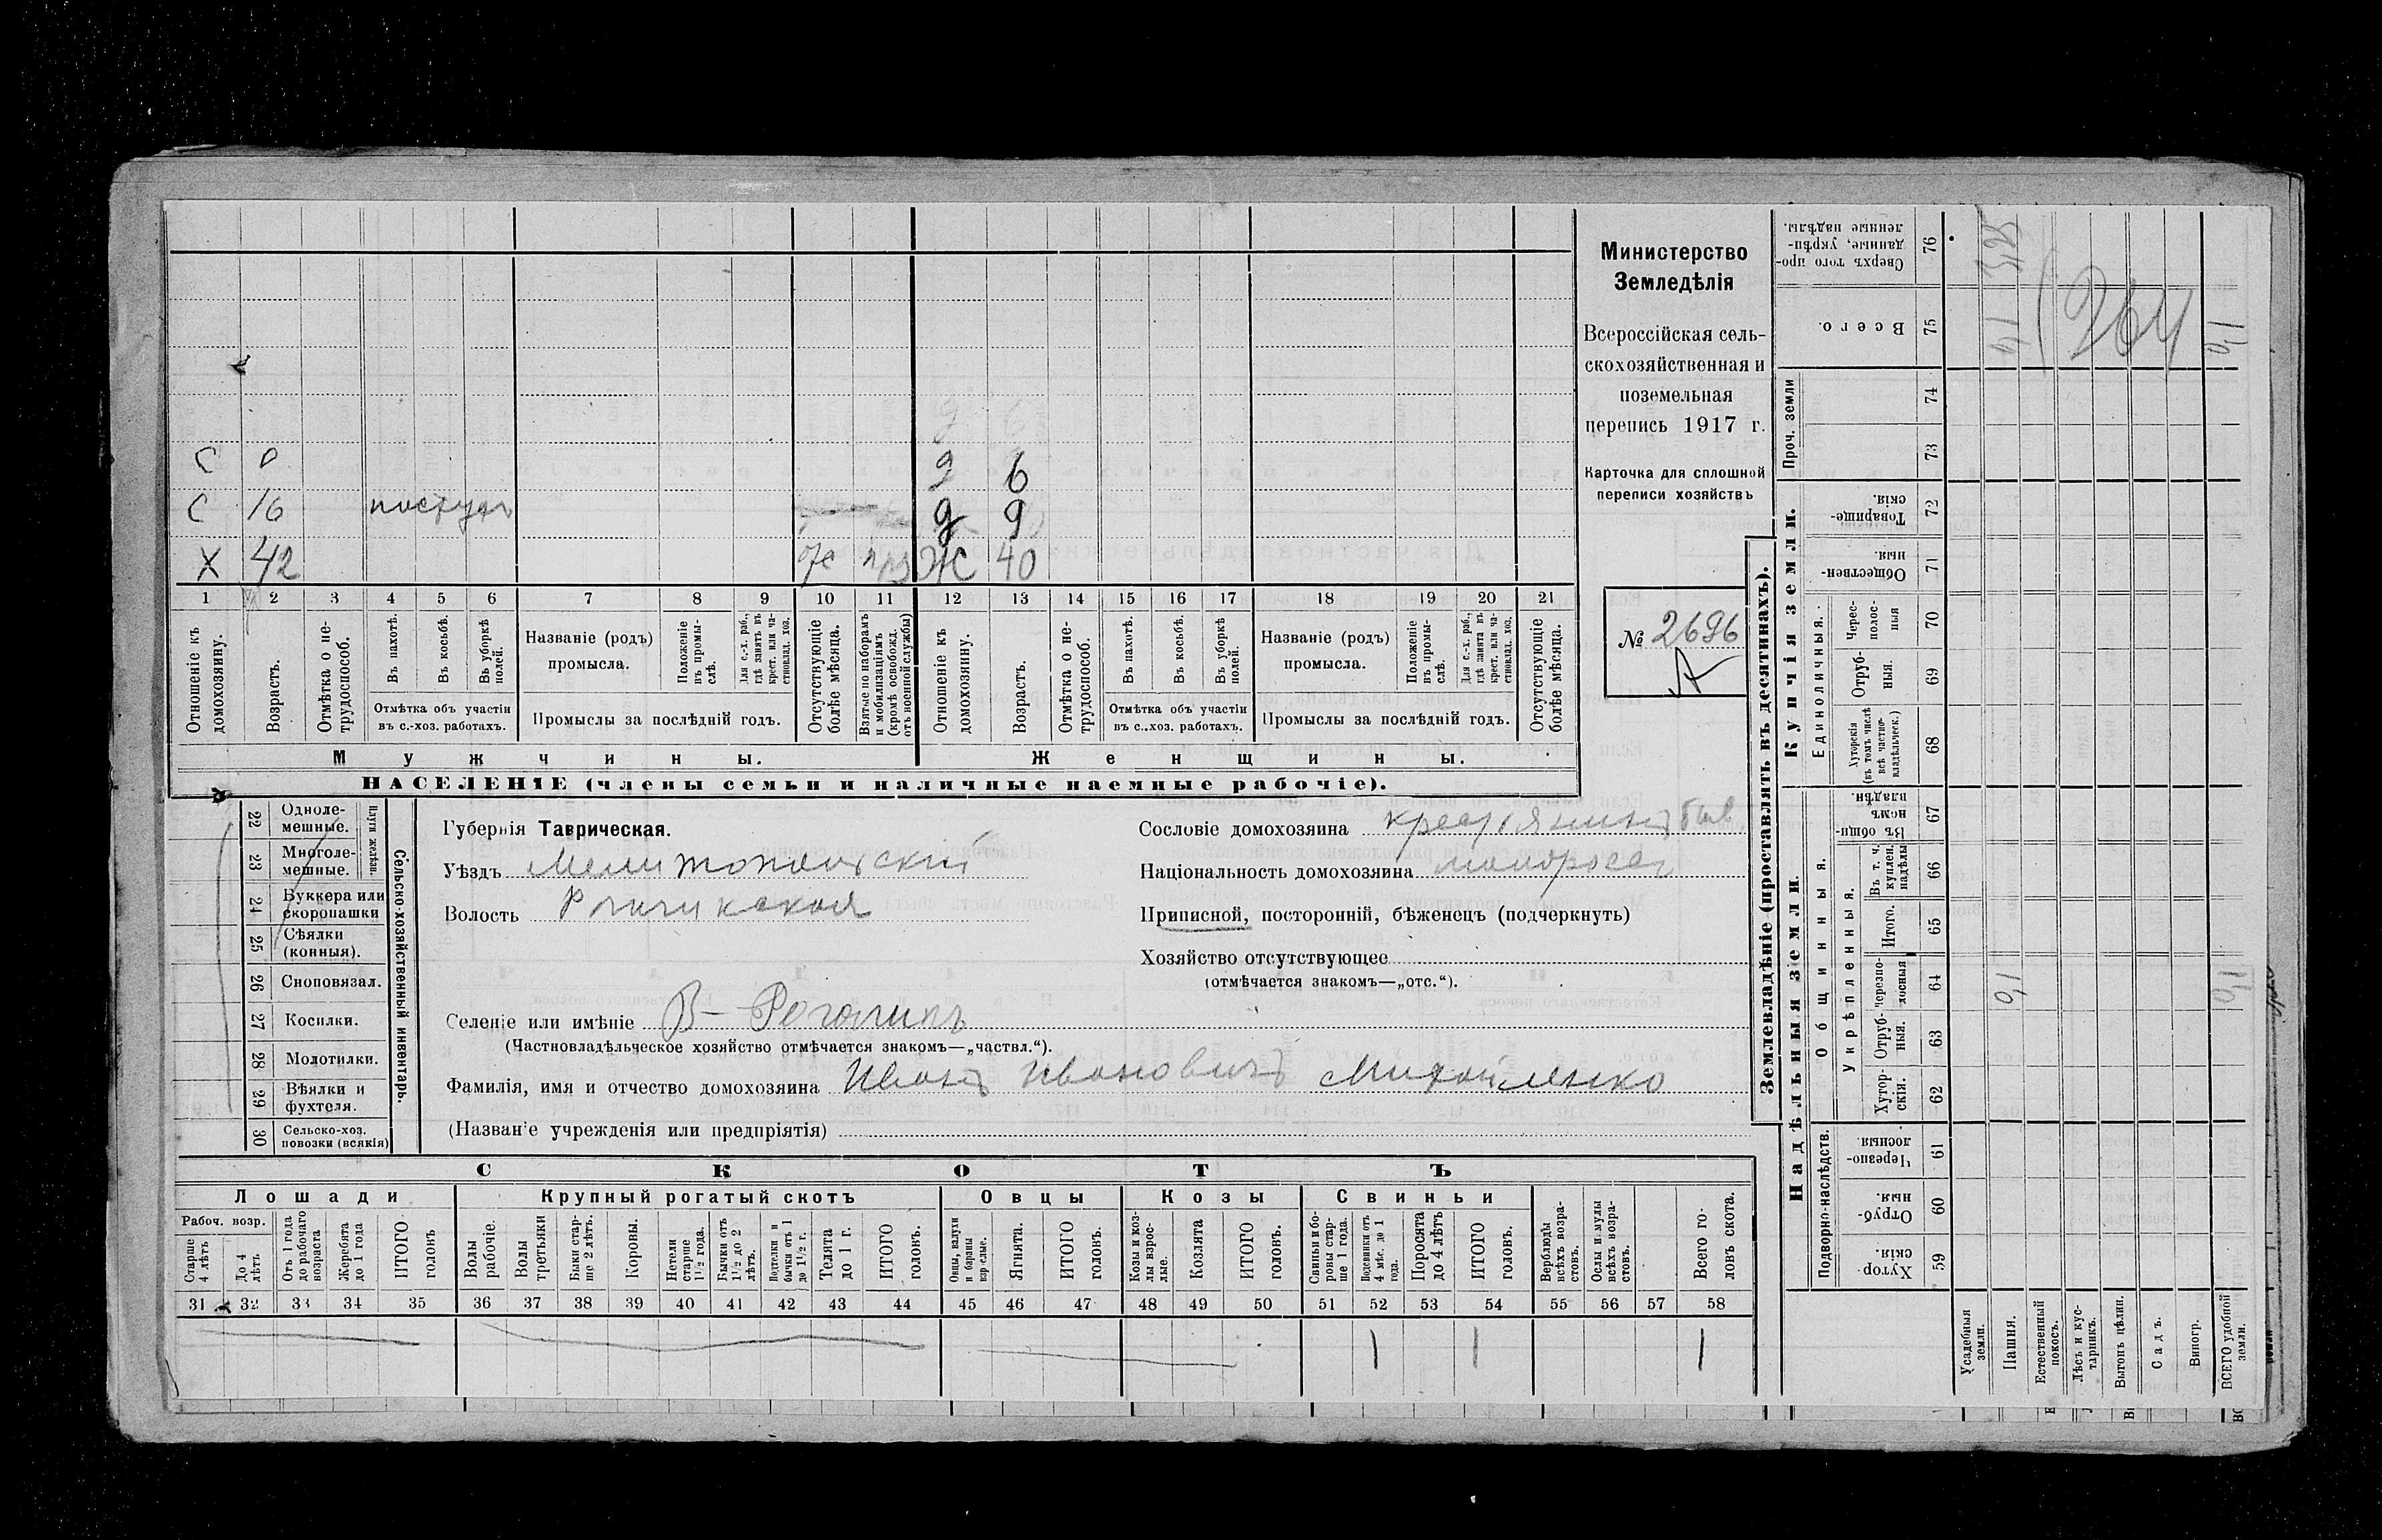 С 0 9 6
С 16 пастухъ 9 9
Х 42 Ж 40
1 2 3 4 5 6 7 8 9 10 11 12 13 14 15 16 17 18 19 20 21
Отношеніе къ домохозяину.
Возрастъ.
Отмѣтка о не-
трудоспособ.
Въ пахотѣ.
Въ косьбѣ.
Въ уборкѣ
полей.
Отмѣтка объ участіи
въ с.-хоз. работахъ.
Названіе (родъ)
промысла.
Положеніе
въ промы-
слѣ.
Для с.-х. раб.,
гдѣ занятъ въ
крест. или ча-
стновлад. хоз.
Промыслы за послѣдній годъ.
Отсутствующіе
болѣе мѣсяца.
Взятые по наборамъ
и мобилизаціямъ
(кромѣ освобожд.
отъ военной службы)
Отношеніе къ
домохозяину.
Возрастъ.
Отмѣтка о не-
трудоспособ.
Въ пахотѣ.
Въ косьбѣ.
Въ уборкѣ
полей.
Отмѣтка объ участіи
въ с.-хоз. работахъ.
Названіе (родъ)
промысла.
Положеніе
въ промы-
слѣ.
Для с.-х. раб.,
гдѣ занятъ въ
крест. или ча-
стновлад. хоз.
Промыслы за послѣдній годъ.
Отсутствующіе
болѣе мѣсяца.
Мужчины. Женщины.
НАСЕЛЕНІЕ (члены семьи и наличные наемные рабочіе).
Министерство
Земледѣлія
Всероссійская сель-
скохозяйственная и
поземельная
перепись 1917 г.
Карточка для сплошной
переписи хозяйствъ
№ 2696
А
22 Одноле-
мешные.
23 Многоле-
мешные.
Плуги желѣзн.
24 Буккера или
скоропашки
25 Сѣялки
(конныя).
26 Сноповязал.
27 Косилки.
28 Молотилки.
29 Вѣялки и
фухтеля.
30 Сельско-хоз.
повозки (всякія)
Сельско-хозяйственный инвентарь.
Губернія Таврическая.
Уѣздъ Мелитопольскій
Волость Рогачикская
Сословіе домохозяина крестьянинъ
Національность домохозяина малороссъ
Приписной, посторонній, бѣженецъ (подчеркнуть)
Хозяйство отсутствующее
(отмѣчается знакомъ—„отс.“).
Селеніе или имѣніе В-Рогачикъ
(Частновладѣльческое хозяйство отмѣчается знакомъ—„частвл.“).
Фамилія, имя и отчество домохозяина Иванъ Ивановичъ Михайленко
(Названіе учрежденія или предпріятія)
СКОТЪ
Лошади Крупный рогатый скотъ Овцы Козы Свиньи
Рабоч. возр.
Старше
4 лѣтъ
До 4
лѣтъ
Отъ 1 года
до рабочаго
возраста
Жеребята
до 1 года
ИТОГО
головъ
Волы
рабочіе.
Волы
третьяки
Быки стар-
ше 2 лѣтъ.
Коровы.
Нетели
старше
1½ года.
Бычки отъ
1½ до 2
лѣтъ.
Подтелки и
бычки отъ 1
до 1½ г.
Телята
до 1 г.
ИТОГО
головъ.
Овцы, валухи
и бараны
взрослые.
Ягнята.
ИТОГО
головъ.
Козы и коз-
лы взрос-
лые.
Козлята
ИТОГО
головъ.
Свиньи и бо-
ровы стар-
ше 1 года.
Подсвинки отъ
4 мѣс. до 1
года.
Поросята
до 4 лѣтъ
ИТОГО
головъ.
Верблюды
всѣхъ возра-
стовъ.
Ослы и мулы
всѣхъ возра-
стовъ.
Всего го-
ловъ скота.
31 32 33 34 35 36 37 38 39 40 41 42 43 44 45 46 47 48 49 50 51 52 53 54 55 56 57 58
1 1 1
Землевладѣніе (проставлять въ десятинахъ).
Надѣльныя земли. Купчія земли. Проч. земли
Подворно-наслѣдств.
Общинныя.
Укрѣпленныя.
Единоличныя.
Хутор-
скія. 59
Отруб-
ныя. 60
Черезпо-
лосныя. 61
Хутор-
скія. 62
Отруб-
ныя. 63
Черезпо-
лосныя 64
Итого. 65
Въ т. ч.
куплен.
надѣлы 66
Въ общин-
номъ
владѣн. 67
Хуторскія
(въ томъ числѣ
всѣ частно-
владѣльческ.) 68
Отруб-
ныя. 69
Черес-
полос-
ныя 70
Обществен-
ныя. 71
Товарище-
скія. 72
73
74
Всего. 75
Сверхъ того про-
данные, укрѣп-
ленные надѣлы. 76
Усадебныя
земли.
Пашня. 9,1 9,1
Естественный
покосъ.
Лѣсъ и кус-
тарникъ.
Выгонъ цѣлин.
Садъ.
Виногр.
ВСЕГО удобной
земли. 9,1 9,1
264